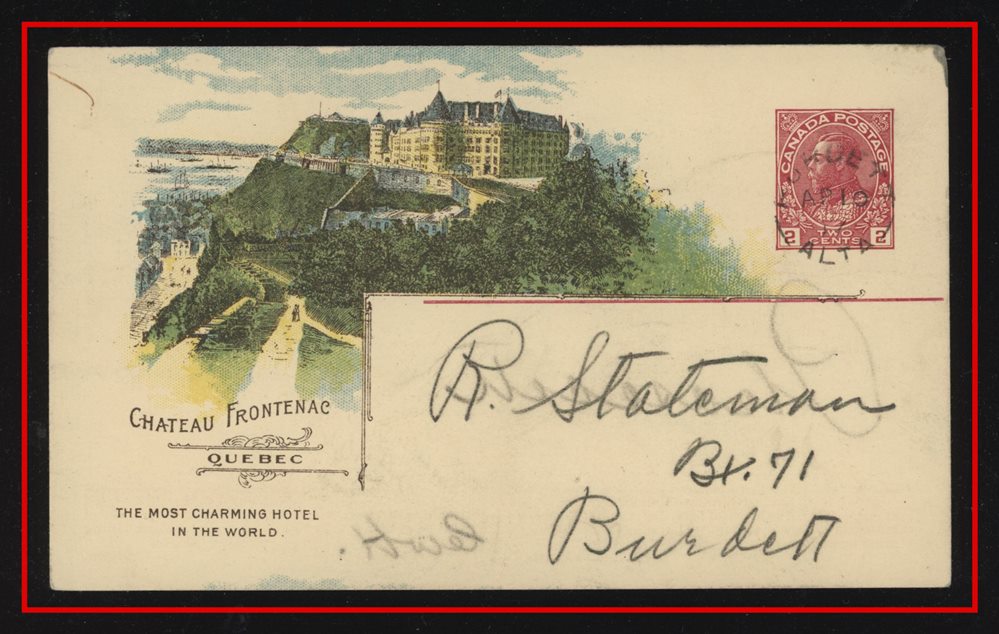 CHATEAU FRONTENAC
QUEBEC
THE MOST CHARMING HOTEL
IN THE WORLD.
CANADA POSTAGE
2 TWO CENTS 2
AP 10
ALTA
R. Stateman
Bx. 71
Burdett